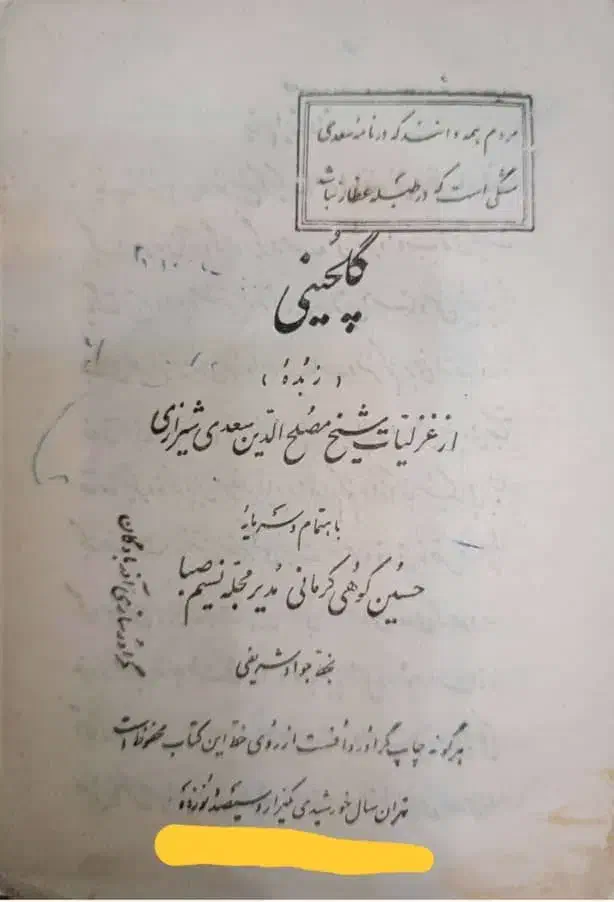 مردم همه دانند که در نامه سعدی
مشکی است که در طبله عطار نباشد
گلچینی
(زُبدهٔ)
از غزلیات شیخ مصلح الدین سعدی شیرازی
باهتمام و سرمایهٔ
حسین کوهی کرمانی مُدیر مجله نسیم صبا
بخط جواد شریفی
گراورسازی آذربادگان
هرگونه چاپ گراور و افست از روی خط این کتاب محفوظ است
تهران سال خورشیدی یکهزار و سیصد و